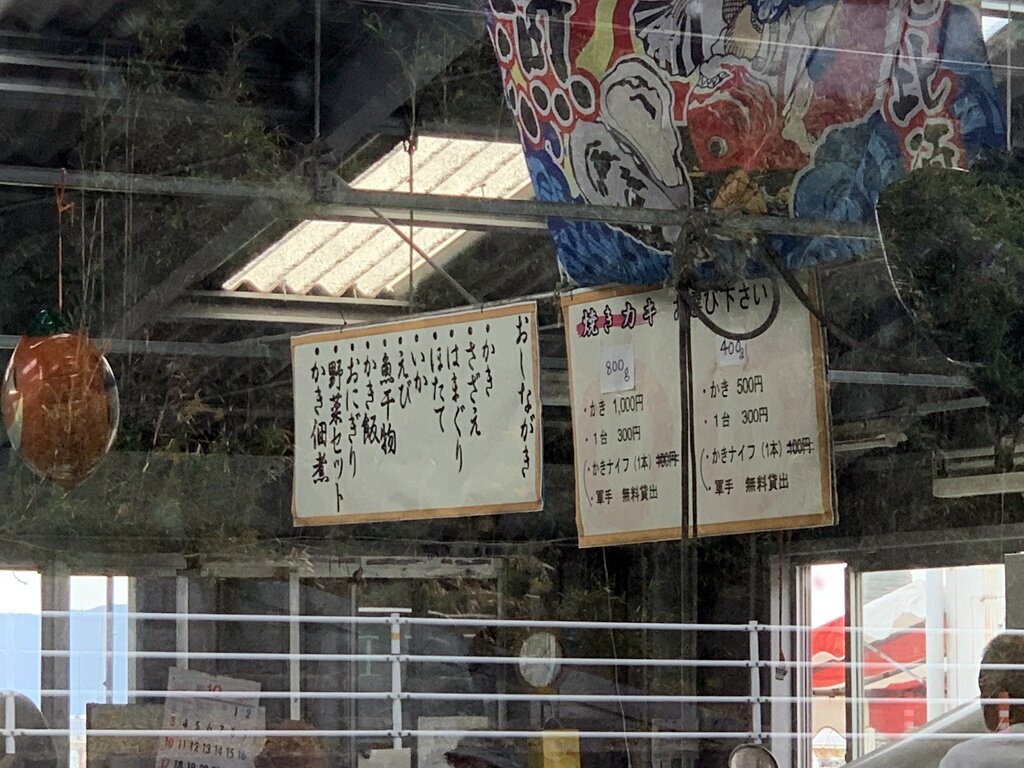 おしながき
・かき
・さざえ
・はまぐり
・ほたて
・いか
・えび
・魚干物
・かき飯
・おにぎり
・野菜セット
・かき佃煮
焼きカキ お選び下さい
800g
・かき 1,000円
・1台 300円
・かきナイフ(1本) 100円
・軍手 無料貸出
400g
・かき 500円
・1台 300円
・かきナイフ(1本) 100円
・軍手 無料貸出
10
1 2
3 4 5 6 7 8 9
10 11 12 13 14 15 16
17 18 19 20